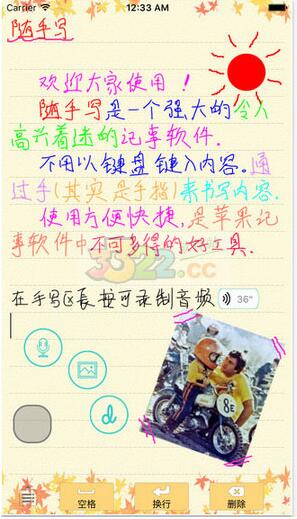 Carrier
12:33 AM
随手写
欢迎大家使用！
随手写是一个强大的令人
高兴着迷的记事软件.
不用以键盘键入内容。通
过手(其实是手指)来书写内容.
使用方便快捷,是苹果记
事软件中不可多得的好工具.
3322.cc
在手写区长按可录制音频
36"
d
8E
空格
换行
删除